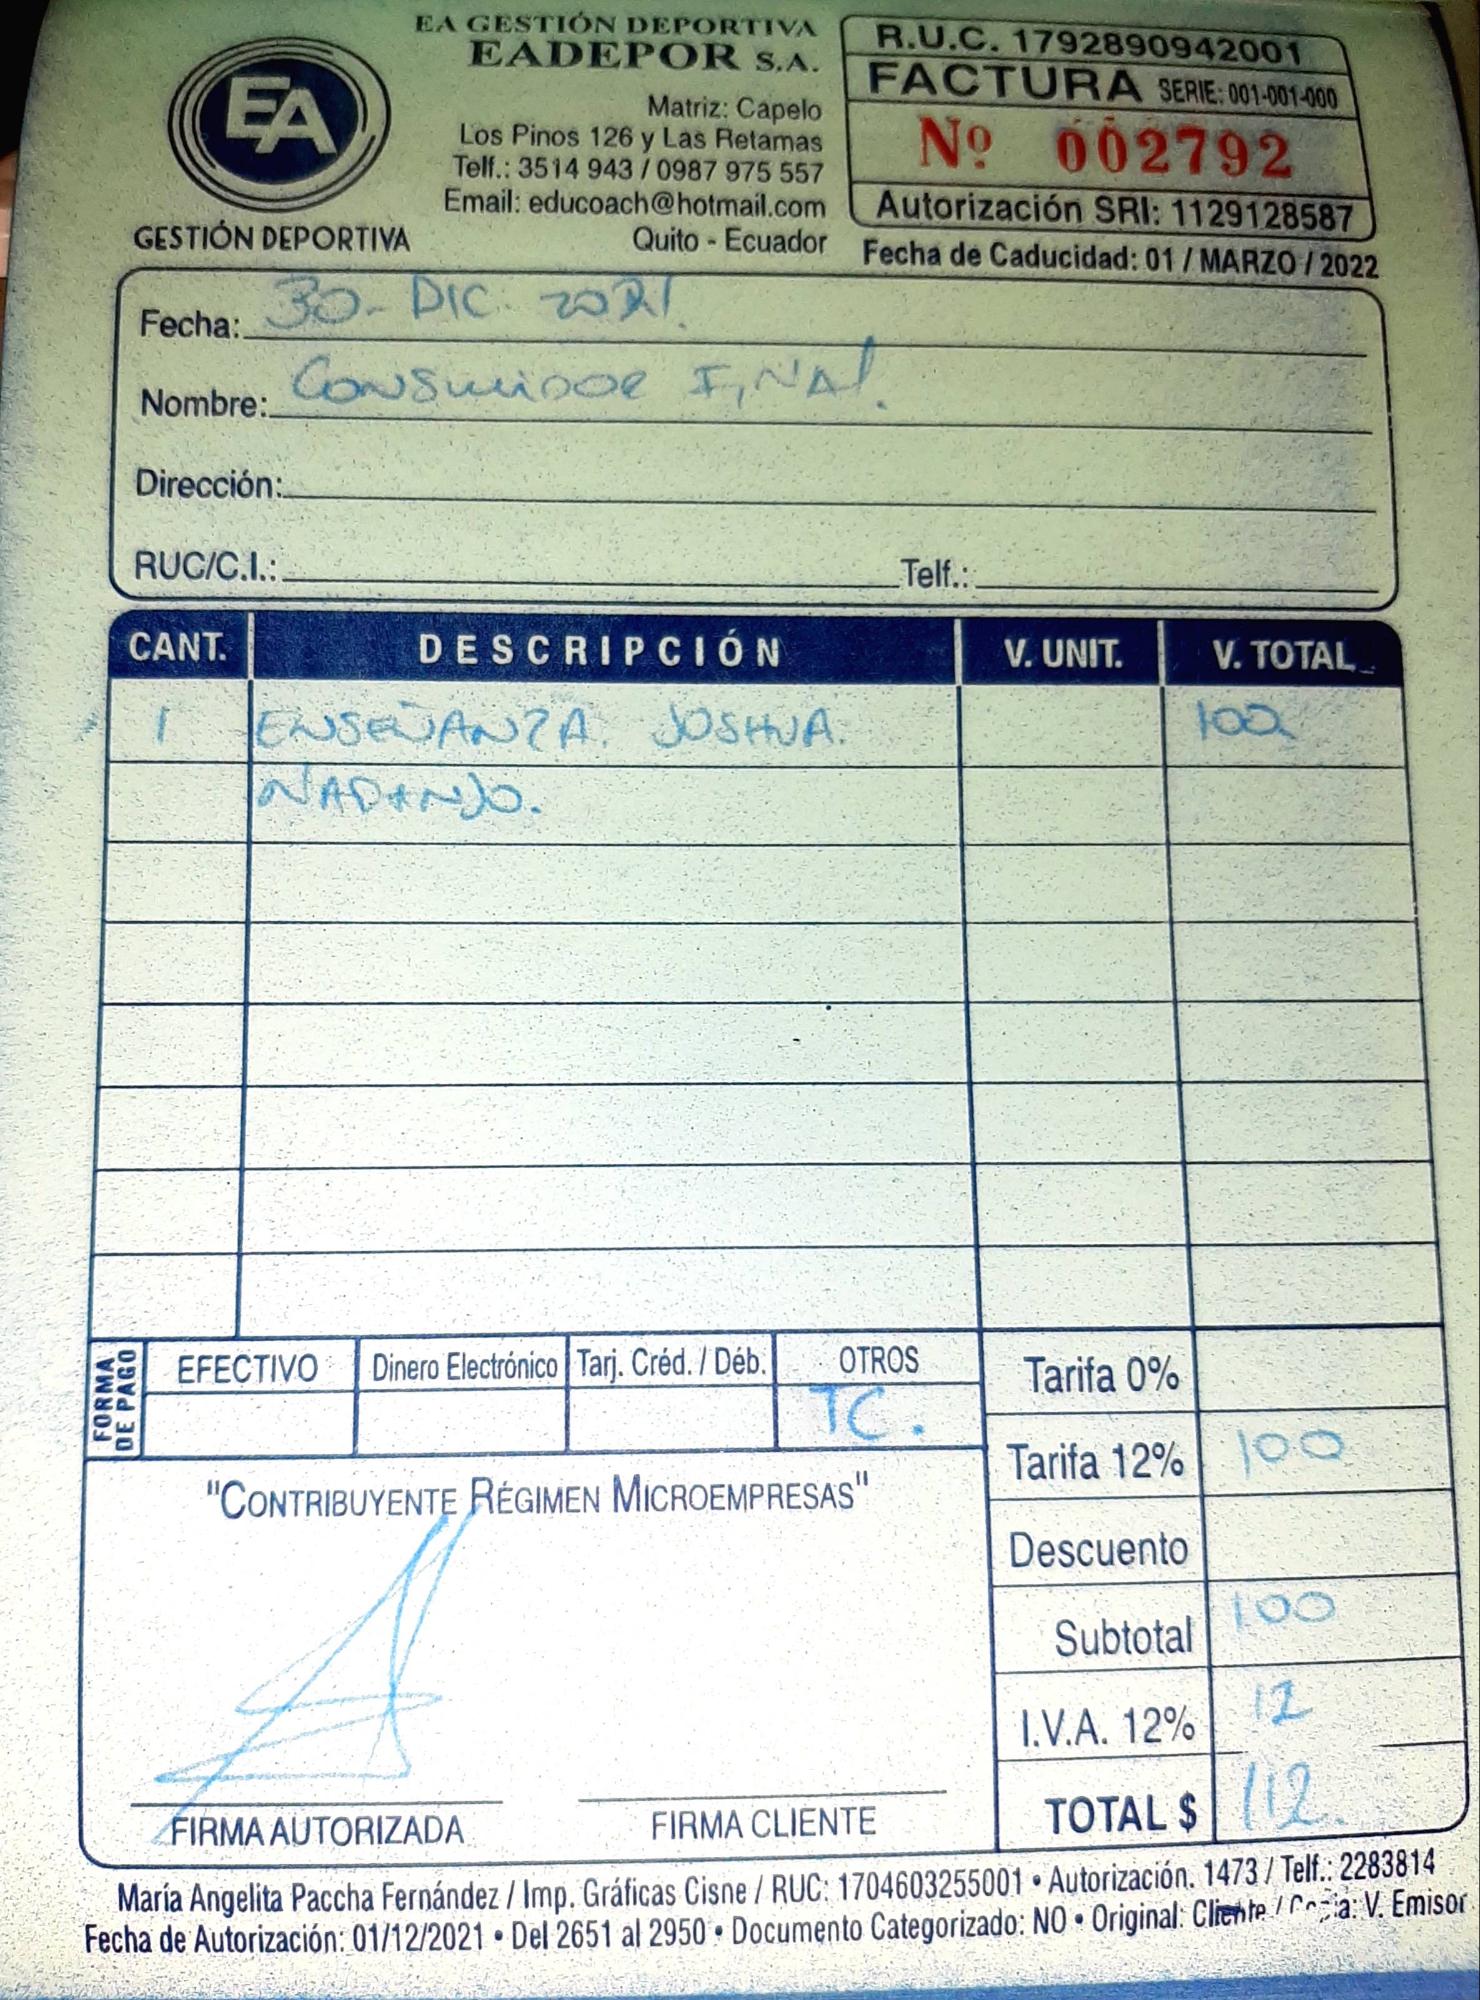 EA GESTIÓN DEPORTIVA
EADEPOR S.A.
EA
GESTIÓN DEPORTIVA
Matriz: Capelo
Los Pinos 126 y Las Retamas
Telf.: 3514 943 / 0987 975 557
Email: educoach@hotmail.com
Quito - Ecuador
R.U.C. 1792890942001
FACTURA SERIE: 001-001-000
Nº 002792
Autorización SRI: 1129128587
Fecha de Caducidad: 01 / MARZO / 2022
Fecha: 30- DIC. 2021.
Nombre: CONSUMIDOR FINAL.
Dirección:
RUC/C.I.: Telf.:
CANT. DESCRIPCIÓN V. UNIT. V. TOTAL
1 ENSEÑANZA. JOSHUA. 100
NARANJO.
FORMA DE PAGO
EFECTIVO Dinero Electrónico Tarj. Créd. / Déb. OTROS
TC.
Tarifa 0%
Tarifa 12% 100
Descuento
Subtotal 100
I.V.A. 12% 12
TOTAL $ 112.
"CONTRIBUYENTE RÉGIMEN MICROEMPRESAS"
FIRMA AUTORIZADA FIRMA CLIENTE
María Angelita Paccha Fernández / Imp. Gráficas Cisne / RUC: 1704603255001 • Autorización. 1473 / Telf.: 2283814
Fecha de Autorización: 01/12/2021 • Del 2651 al 2950 • Documento Categorizado: NO • Original: Cliente / Copia: V. Emisor